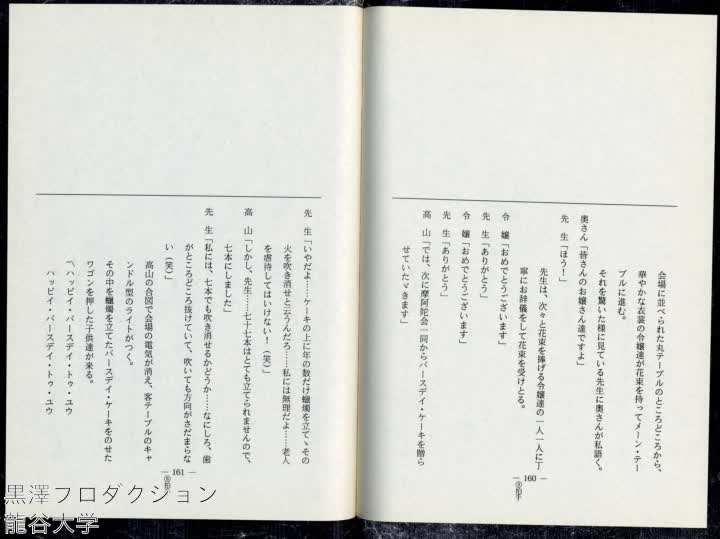 会場に並べられた丸テーブルのところどころから、
華やかな衣裳の令嬢達が花束を持ってメーン・テー
ブルに進む。
それを驚いた様に見ている先生に奥さんが私語く。
奥さん「皆さんのお嬢さん達ですよ」
先　生「ほう！」
先生は、次々と花束を捧げる令嬢達の一人一人に丁
寧にお辞儀をして花束を受けとる。
令　嬢「おめでとうございます」
先　生「ありがとう」
令　嬢「おめでとうございます」
先　生「ありがとう」
高　山「では、次に摩阿陀会一同からバースデイ・ケーキを贈ら
せていたゞきます」
— 160 —
先　生「いやだよ……ケーキの上に年の数だけ蠟燭を立てゝその
火を吹き消せと云うんだろ……私には無理だよ……老人
を虐待してはいけない！（笑）」
高　山「しかし、先生……七十七本はとても立てられませんので、
七本にしました」
先　生「私には、七本でも吹き消せるかどうか……なにしろ、歯
がところどころ抜けていて、吹いても方向がさだまらな
い（笑）」
高山の合図で会場の電気が消え、客テーブルのキャ
ンドル型のライトがつく。
その中を蠟燭を立てたバースデイ・ケーキをのせた
ワゴンを押した子供達が来る。
〽ハッピイ・バースデイ・トゥ・ユウ
ハッピイ・バースデイ・トゥ・ユウ
— 161 —
黒澤プロダクション
龍谷大学